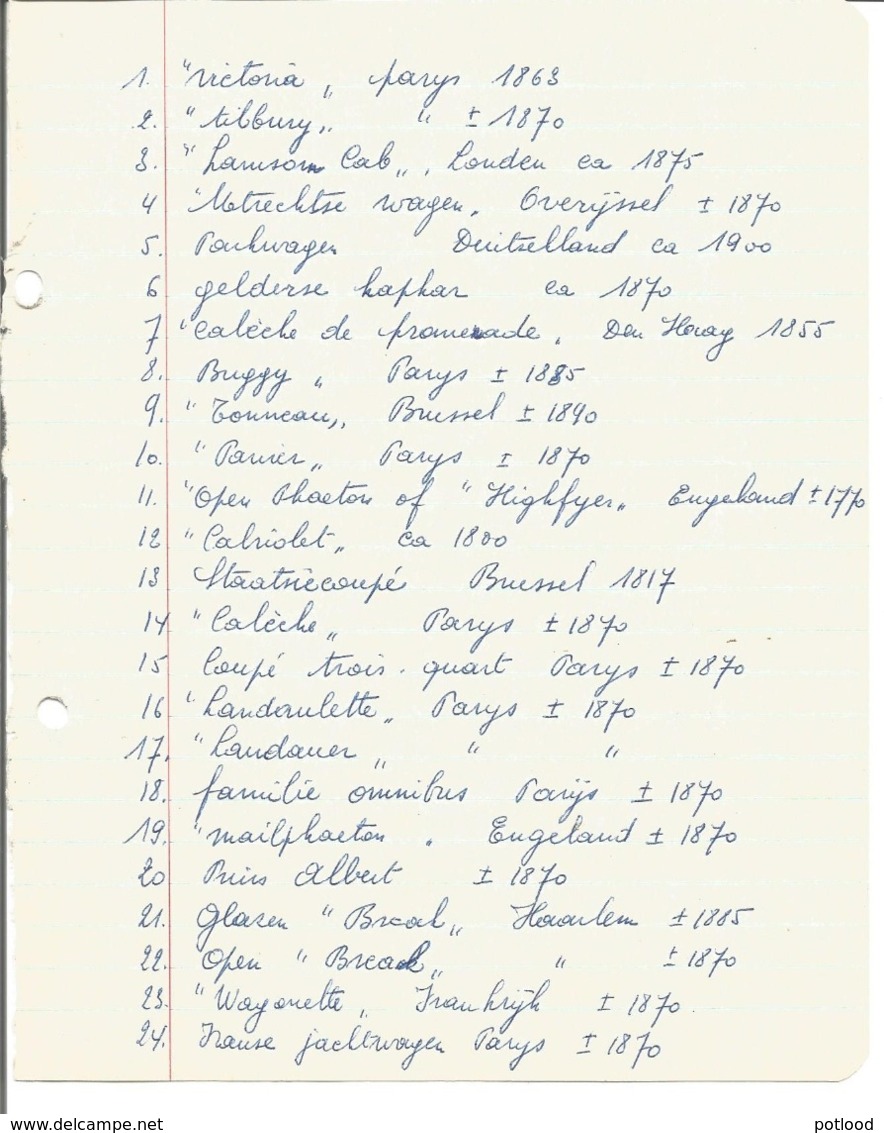 1. "Victoria„ parys 1863
2. "tilbury„ " ± 1870
3. "hamsom Cab„, Londen ca 1875
4 "Utrechtse wagen„ Overijssel ± 1870
5. Parkwagen Duitselland ca 1900
6 gelderse kapkar ca 1870
7 "calèche de promenade„ Den Haag 1855
8. Buggy „ Parys ± 1885
9. "Tonneau„ Brussel ± 1890
10. "Panier„ Parys ± 1870
11. "Open Phaeton of "Highfyer„ Engeland ± 1770
12 "Cabriolet„ ca 1800
13 Staatsiecoupé Brussel 1817
14. "Calèche„ Parys ± 1870
15 Coupé trois-quart Parys ± 1870
16 "Landaulette„ Parys ± 1870
17. "Landauer„ " "
18. familie omnibus Parijs ± 1870
19. "mailphaeton„ Engeland ± 1870
20 Prins Albert ± 1870
21. Glazen "Break„ Haarlem ± 1885
22. Open "Break„ " ± 1870
23. "Wagonette„ Frankrijk ± 1870
24. Franse jachtwagen Parys ± 1870
www.delcampe.net potlood